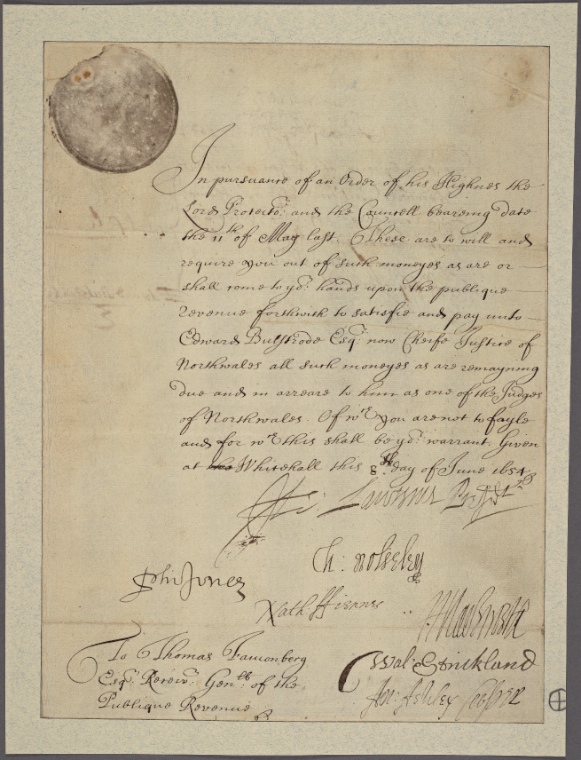 In pursuance of an Order of his Highnes the
Lord Protector: and the Councell bearing date
the 11th of May last. These are to will and
require you out of such moneyes as are or
shall come to yor: hands upon the publique
Revenue forthwith to satisfie and pay unto
Edward Bulstrode Esqr: now Cheife Justice of
Northwales all such moneyes as are remayning
due and in arreare to him as one of the Judges
of Northwales. Of wch you are not to fayle
and for wch this shall be yor: warrant. Given
at Whitehall this 8th day of June 1654
He: Lawrence Presidt
Ch: Wolseley
John Jones
Nath: Fiennes
Wal: Strickland
An: Ashley Cooper
To Thomas Fauconberg
Esqr: Receivr: Genll of the
Publique Revenue